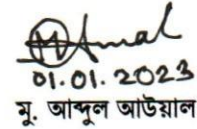 01.01.2023
মু. আব্দুল আউয়াল